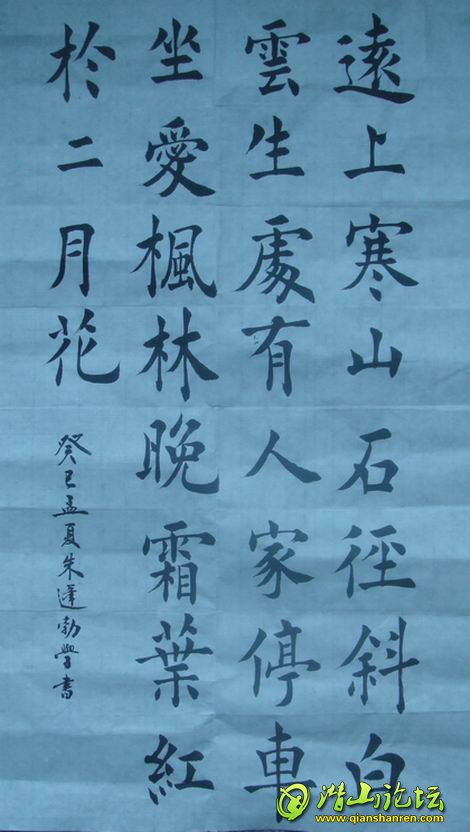 遠上寒山石徑斜白
雲生處有人家停車
坐愛楓林晚霜葉紅
於二月花
癸巳孟夏朱蓬勃學書
潜山论坛
www.qianshanren.com